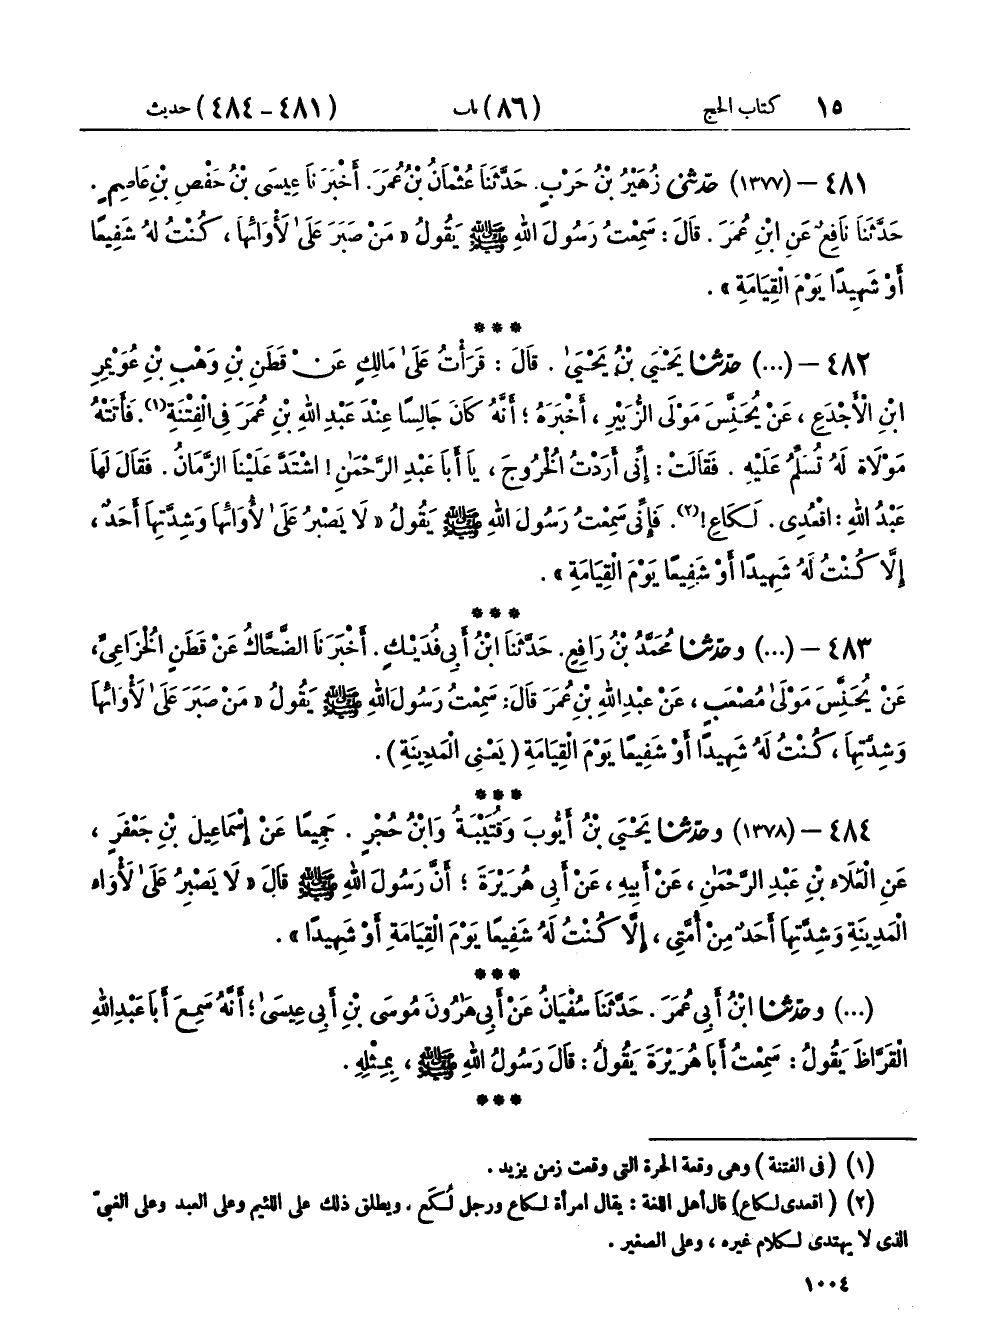 ١٥ كتاب الحج (٨٦) باب (٤٨١ - ٤٨٤) حديث
٤٨١ – (١٣٧٧) حدّثنى زُهَيْرُ بْنُ حَرْبٍ. حَدَّثَنَا عُثْمَانُ بْنُ عُمَرَ. أَخْبَرَنَا عِيسَى بْنُ حَفْصِ بْنِ عَاصِمٍ .
حَدَّثَنَا نَافِعٌ عَنِ ابْنِ عُمَرَ . قَالَ : سَمِعْتُ رَسُولَ اللهِ ﷺ يَقُولُ « مَنْ صَبَرَ عَلَىٰ لَأْوَائِهَا ، كُنْتُ لَهُ شَفِيعًا
أَوْ شَهِيدًا يَوْمَ الْقِيَامَةِ » .
***
٤٨٢ – (...) حدّثنا يَحْيَىٰ بْنُ يَحْيَىٰ . قَالَ : قَرَأْتُ عَلَىٰ مَالِكٍ عَنْ قَطَنِ بْنِ وَهْبِ بْنِ عُوَيْمِرِ
ابْنِ الْأَجْدَعِ ، عَنْ يُحَنِّسَ مَوْلَى الزُّبَيْرِ ، أَخْبَرَهُ ؛ أَنَّهُ كَانَ جَالِسًا عِنْدَ عَبْدِ اللهِ بْنِ عُمَرَ فِى الْفِتْنَةِ(١). فَأَتَتْهُ
مَوْلَاةٌ لَهُ تُسَلِّمُ عَلَيْهِ . فَقَالَتْ : إِنِّى أَرَدْتُ الْخُرُوجَ ، يَا أَبَا عَبْدِ الرَّحْمَٰنِ ! اشْتَدَّ عَلَيْنَا الزَّمَانُ . فَقَالَ لَهَا
عَبْدُ اللهِ : اقْعُدِى . لَكَاعِ !(٢). فَإِنِّى سَمِعْتُ رَسُولَ اللهِ ﷺ يَقُولُ « لَا يَصْبِرُ عَلَىٰ لَأْوَائِهَا وَشِدَّتِهَا أَحَدٌ ،
إِلَّا كُنْتُ لَهُ شَهِيدًا أَوْ شَفِيعًا يَوْمَ الْقِيَامَةِ » .
***
٤٨٣ – (...) وحدّثنا مُحَمَّدُ بْنُ رَافِعٍ. حَدَّثَنَا ابْنُ أَبِى فُدَيْكٍ. أَخْبَرَنَا الضَّحَّاكُ عَنْ قَطَنٍ الْخُزَاعِىِّ،
عَنْ يُحَنِّسَ مَوْلَىٰ مُصْعَبٍ ، عَنْ عَبْدِ اللهِ بْنِ عُمَرَ قَالَ: سَمِعْتُ رَسُولَ اللهِ ﷺ يَقُولُ « مَنْ صَبَرَ عَلَىٰ لَأْوَائِهَا
وَشِدَّتِهَا ، كُنْتُ لَهُ شَهِيدًا أَوْ شَفِيعًا يَوْمَ الْقِيَامَةِ ( يَعْنِى الْمَدِينَةِ ) .
***
٤٨٤ – (١٣٧٨) وحدّثنا يَحْيَىٰ بْنُ أَيُّوبَ وَقُتَيْبَةُ وَابْنُ حُجْرٍ . جَمِيعًا عَنْ إِسْمَاعِيلَ بْنِ جَعْفَرٍ ،
عَنِ الْعَلَاءِ بْنِ عَبْدِ الرَّحْمَٰنِ ، عَنْ أَبِيهِ ، عَنْ أَبِى هُرَيْرَةَ ؛ أَنَّ رَسُولَ اللهِ ﷺ قَالَ « لَا يَصْبِرُ عَلَىٰ لَأْوَاءِ
الْمَدِينَةِ وَشِدَّتِهَا أَحَدٌ مِنْ أُمَّتِى ، إِلَّا كُنْتُ لَهُ شَفِيعًا يَوْمَ الْقِيَامَةِ أَوْ شَهِيدًا » .
***
(...) وحدّثنا ابْنُ أَبِى عُمَرَ . حَدَّثَنَا سُفْيَانُ عَنْ أَبِى هَٰرُونَ مُوسَى بْنِ أَبِى عِيسَىٰ ؛ أَنَّهُ سَمِعَ أَبَا عَبْدِ اللهِ
الْقَرَّاظَ يَقُولُ : سَمِعْتُ أَبَا هُرَيْرَةَ يَقُولُ : قَالَ رَسُولُ اللهِ ﷺ ، بِمِثْلِهِ .
***
(١) ( فى الفتنة ) وهى وقعة الحرة التى وقعت زمن يزيد .
(٢) ( اقعدى لكاع) قال أهل اللغة : يقال امرأة لكاع ورجل لُكَع . ويطلق ذلك على اللئيم وعلى العبد وعلى الغبىّ
الذى لا يهتدى لكلام غيره ، وعلى الصغير .
١٠٠٤